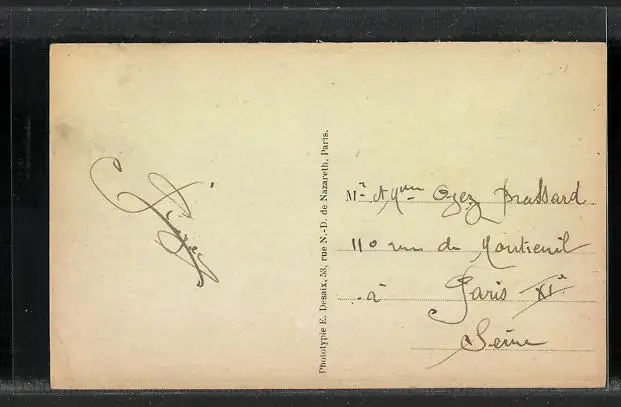 Phototypie E. Desaix, 53, rue N.-D. de Nazareth, Paris.
Mr et Mme Ogez Brassard
110 rue de Montreuil
à Paris XIe
Seine